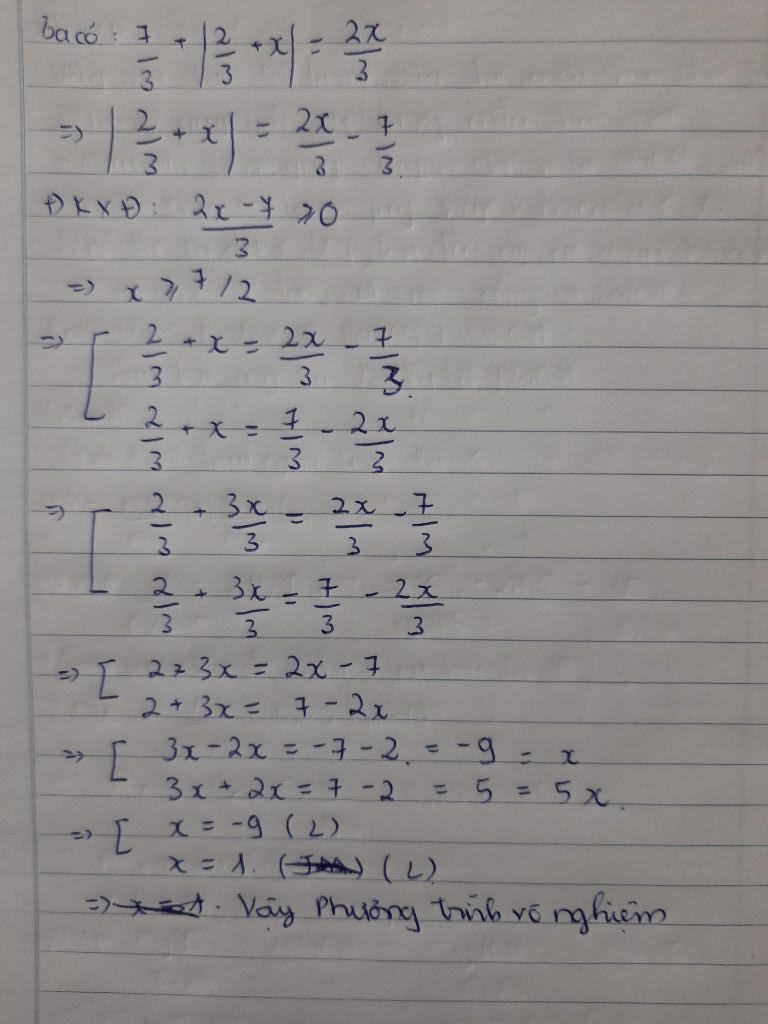 Ta có: 7/3 + |2/3 + x| = 2x/3
=> |2/3 + x| = 2x/3 - 7/3.
ĐKXĐ: (2x - 7)/3 ⩾ 0
=> x ⩾ 7/2
=> [ 2/3 + x = 2x/3 - 7/3.
2/3 + x = 7/3 - 2x/3
=> [ 2/3 + 3x/3 = 2x/3 - 7/3
2/3 + 3x/3 = 7/3 - 2x/3
=> [ 2 + 3x = 2x - 7
2 + 3x = 7 - 2x
=> [ 3x - 2x = -7 - 2. = -9 = x
3x + 2x = 7 - 2 = 5 = 5x.
=> [ x = -9 (L)
x = 1. (L)
=> x = 1. Vậy Phương trình vô nghiệm